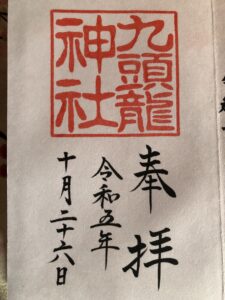 九頭龍
神社
奉拝
令和五年
十月二十六日